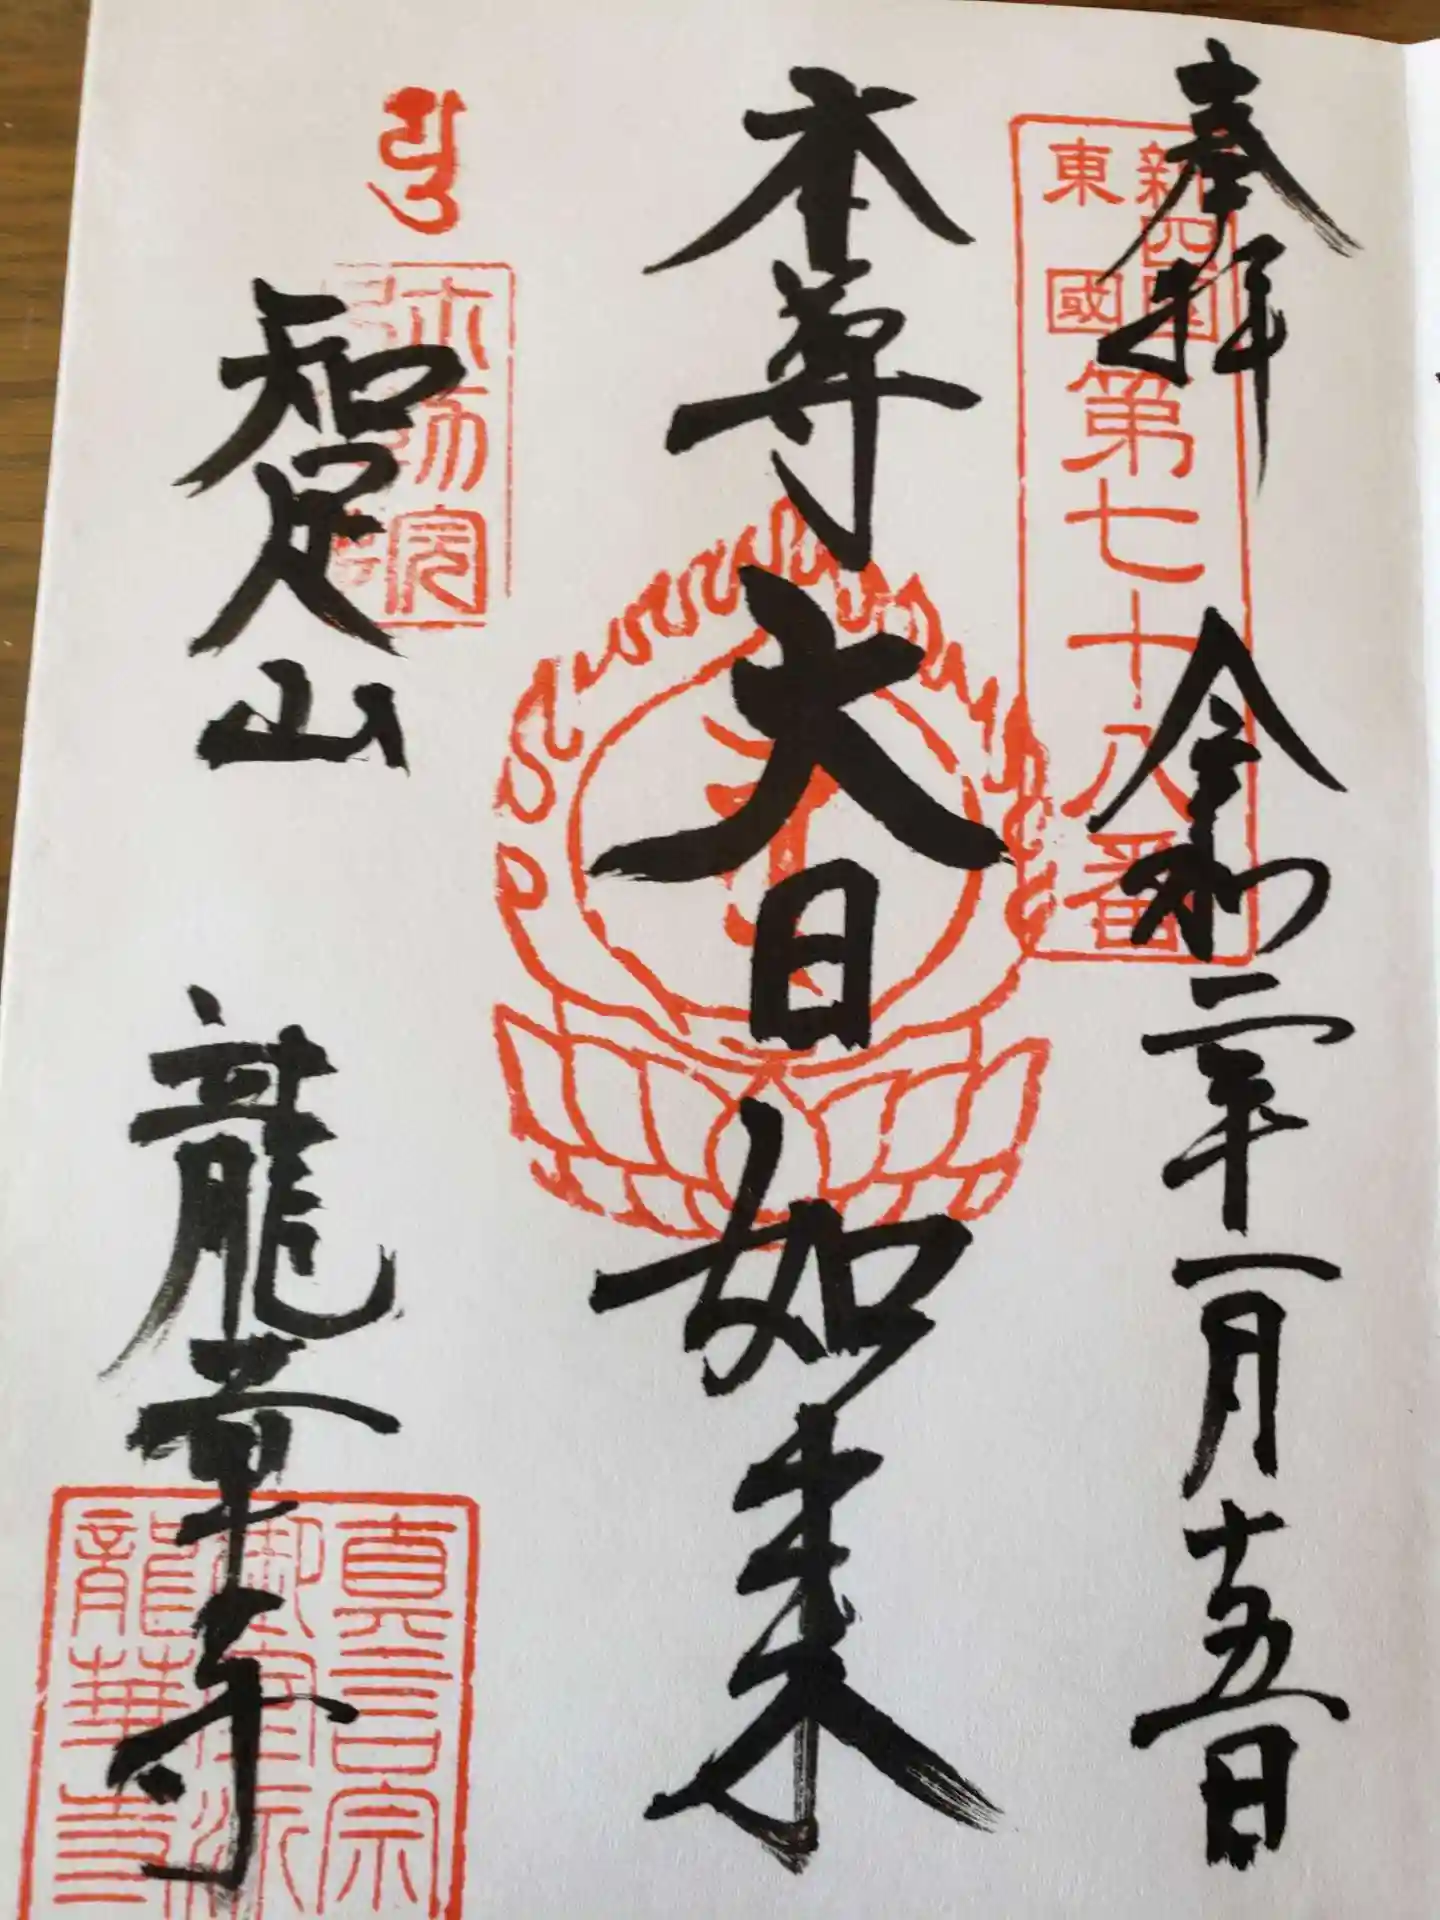 奉拝 令和二年一月十五日
新四国
東國
第七十八番
本尊大日如来
智足山 龍華寺
真言宗
御室派
龍華寺